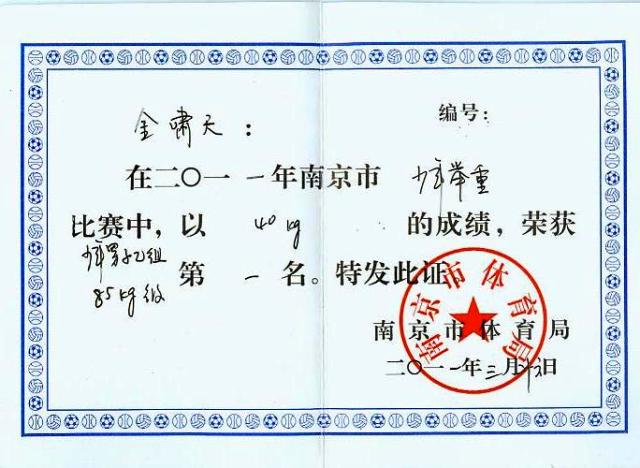 编号:
金啸天:
在二〇一一年南京市少年举重
比赛中,以40kg的成绩,荣获
少年男子乙组
85kg级
第一名。特发此证
南京市体育局
南京市体育局
二〇一一年三月 日